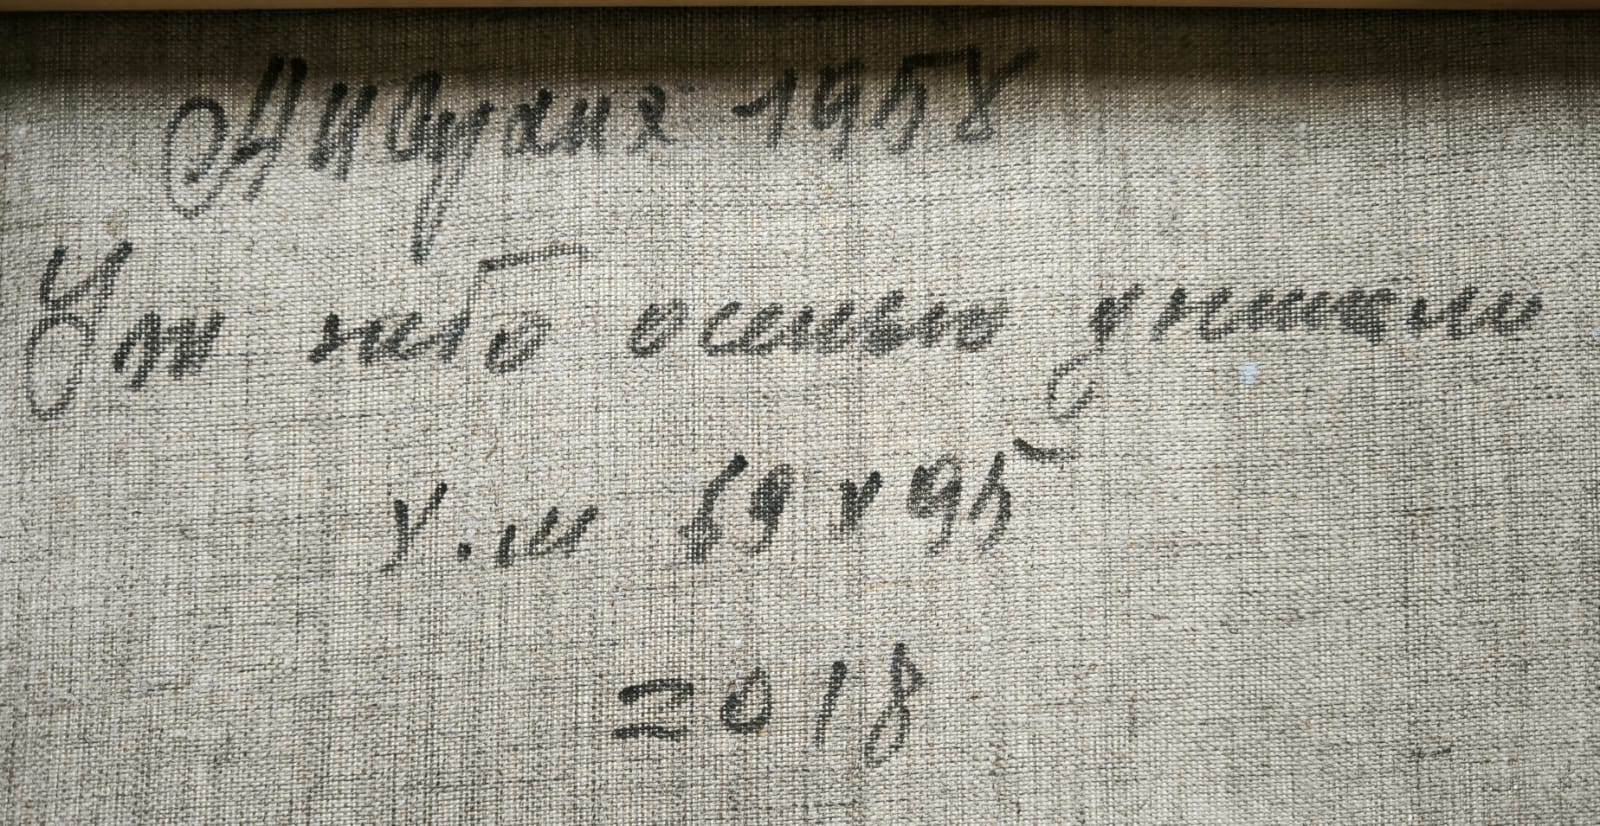 А И Бухих 1958
Уж небо осенью дышало
х.м 69 х 95
2018